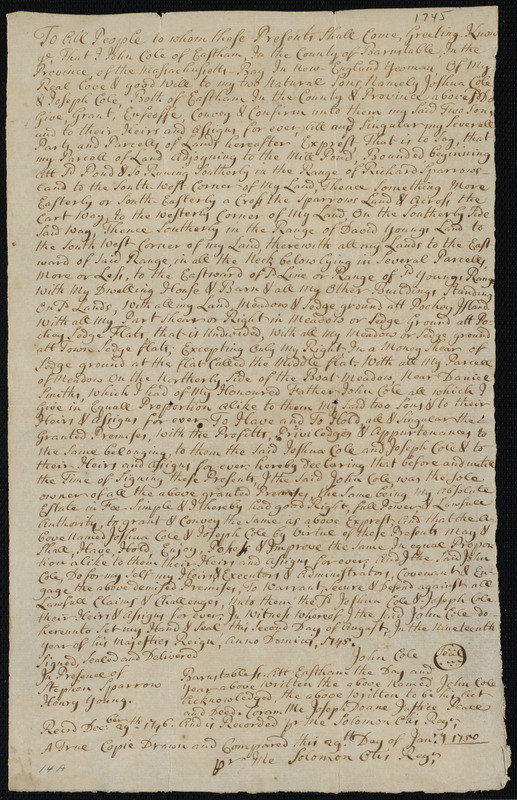 1745
To All People to whom these Presents Shall Come, Greeting, Know
ye, That I John Cole of Eastham, In the County of Barnstable, In the
Province, of the Massachusetts-Bay In New-England Yeoman. Of My
Real Love & good Will to my two Natural Sons Namely Joshua Cole
& Joseph Cole, Both of Eastham In the County & Province aboves.d Do
Give, Grant, Enfeoffe, Convey & Confirm unto them my Said Two Sons
and to their Heirs and assigns for ever, all and Singular my Severall
Parts and Parcells of Land hereafter Exprest, That is to Say, that
my Parcell of Land adjoyning to the Mill Pond; Bounded beginning
att s.d Pond & So Runing Southerly in the Range of Richard Sparrows
Land to the South West Corner of My Land, Thence Something More
Easterly or South-Easterly a Cross the Sparrows Land & across the
Cart Way, to the Westerly Corner of My Land, On the Southerly Side
Said Way, Thence Southerly in the Range of David Youngs Land to
the South West Corner of my Land therewith all my Lands to the East-
ward of Said Range, in all the Neck below Lying in Several Parcells
More or Less, to the Eastward of s.d Line or Range of s.d Youngs Range
With My Dwelling House & Barn & all my Other Buildings Standing
On s.d Lands, With all my Land, Meadow & Sedge ground att Pochey Island
With all My Part Shear or Right in Meadow or Sedge Ground att Po-
chey Sedge Flats, that is Undivided, with all my Meadow or Sedge ground
att Town Sedge flats, Excepting Only my Right In a Money Shear of
Sedge ground at the flat Called the Middle flat: With all My Parcell
of Meadow On the Northerly Side of the Boat-Meadow Near Daniel
Smiths, which I had of My Honoured Father John Cole all which I
Give in Equall Proportion alike to them my Said two Sons & to their
Heirs & assigns for ever. To Have and To Hold, all & Singular the
Granted Premises, with the Profitts, Priviledges & Appurtenances to
the Same belonging, to them the Said Joshua Cole and Joseph Cole & to
their Heirs and assigns for ever, hereby Declaring that before and untill
the Time of Signing these Presents, I the Said John Cole was the Sole
owner of all the above granted Premises, the Same being my absolute
Estate in Fee-Simple & I hereby had good Right, full Power & Lawfull
Authority to grant & Convey the Same as above Exprest And that the a-
bove named Joshua Cole & Joseph Cole by Virtue of these Presents may &
Shall Have, Hold, Enjoy, Posess & Improve the Same In equal Propor-
tion alike to them their Heirs and assigns for ever, And I the Said John
Cole, Do for my Self my Heirs Executors & Administrators, Covenant & En-
gage the above demised Premises, To Warrant, Secure & Defend against all
Lawfull Claims & Challenges, Unto them the s.d Joshua Cole & Joseph Cole
their Heirs & assigns for ever. In Witness whereof I the said John Cole do
hereunto Set my Hand & Seal this Second Day of August, In the Nineteenth
year of his Majesties Reign, Anno Domini, 1745.
Signed, Sealed and Delivered
John Cole (Seal)
In Presence of
Stephen Sparrow
Henry Young.
Barnstable ss. Att Eastham the Day and
Year above written the above Named John Cole
Acknowledged the above written to be his Act
and Deed. Coram Me Joseph Doane Justice Peace
Rec.d December 29th 1746. And is Recorded pr Me Solomon Otis Reg.r
A True Copie Drawn and Compared this 29th Day of Jan.y 1750
pr Me Solomon Otis Reg.r
14A